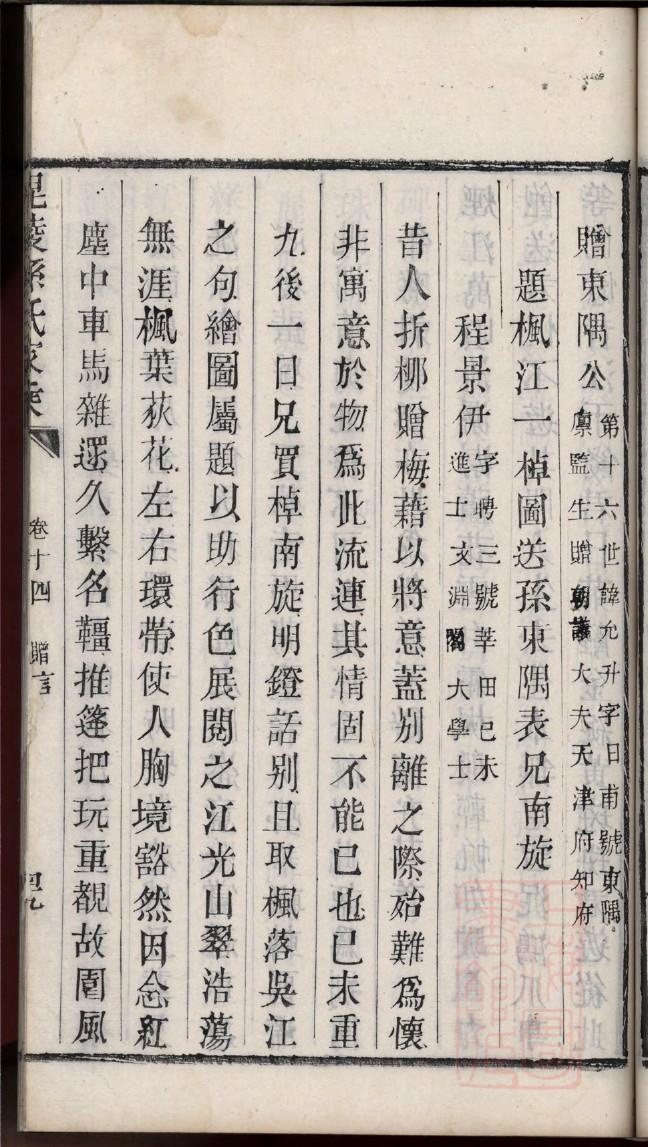 贈東隅公第十六世諱允升字日南號東隅
廩監生贈朝議大夫天津府知府
題楓江一棹圖送孫東隅表兄南旋
程景伊字聘三號莘田已未
進士文淵閣大學士
昔人折柳贈梅藉以將意蓋别離之際始難爲懷
非寓意於物爲此流連其情固不能已也已未重
九後一日兄買棹南旋明鐙話别且取楓落吳江
之句繪圖屬題以助行色展閱之江光山翠浩蕩
無涯楓葉荻花左右環帶使人胸境豁然因念紅
塵中車馬雜遝久繫名韁推篷把玩重覩故園風
毘陵孫氏家乘 卷十四 贈言 四九